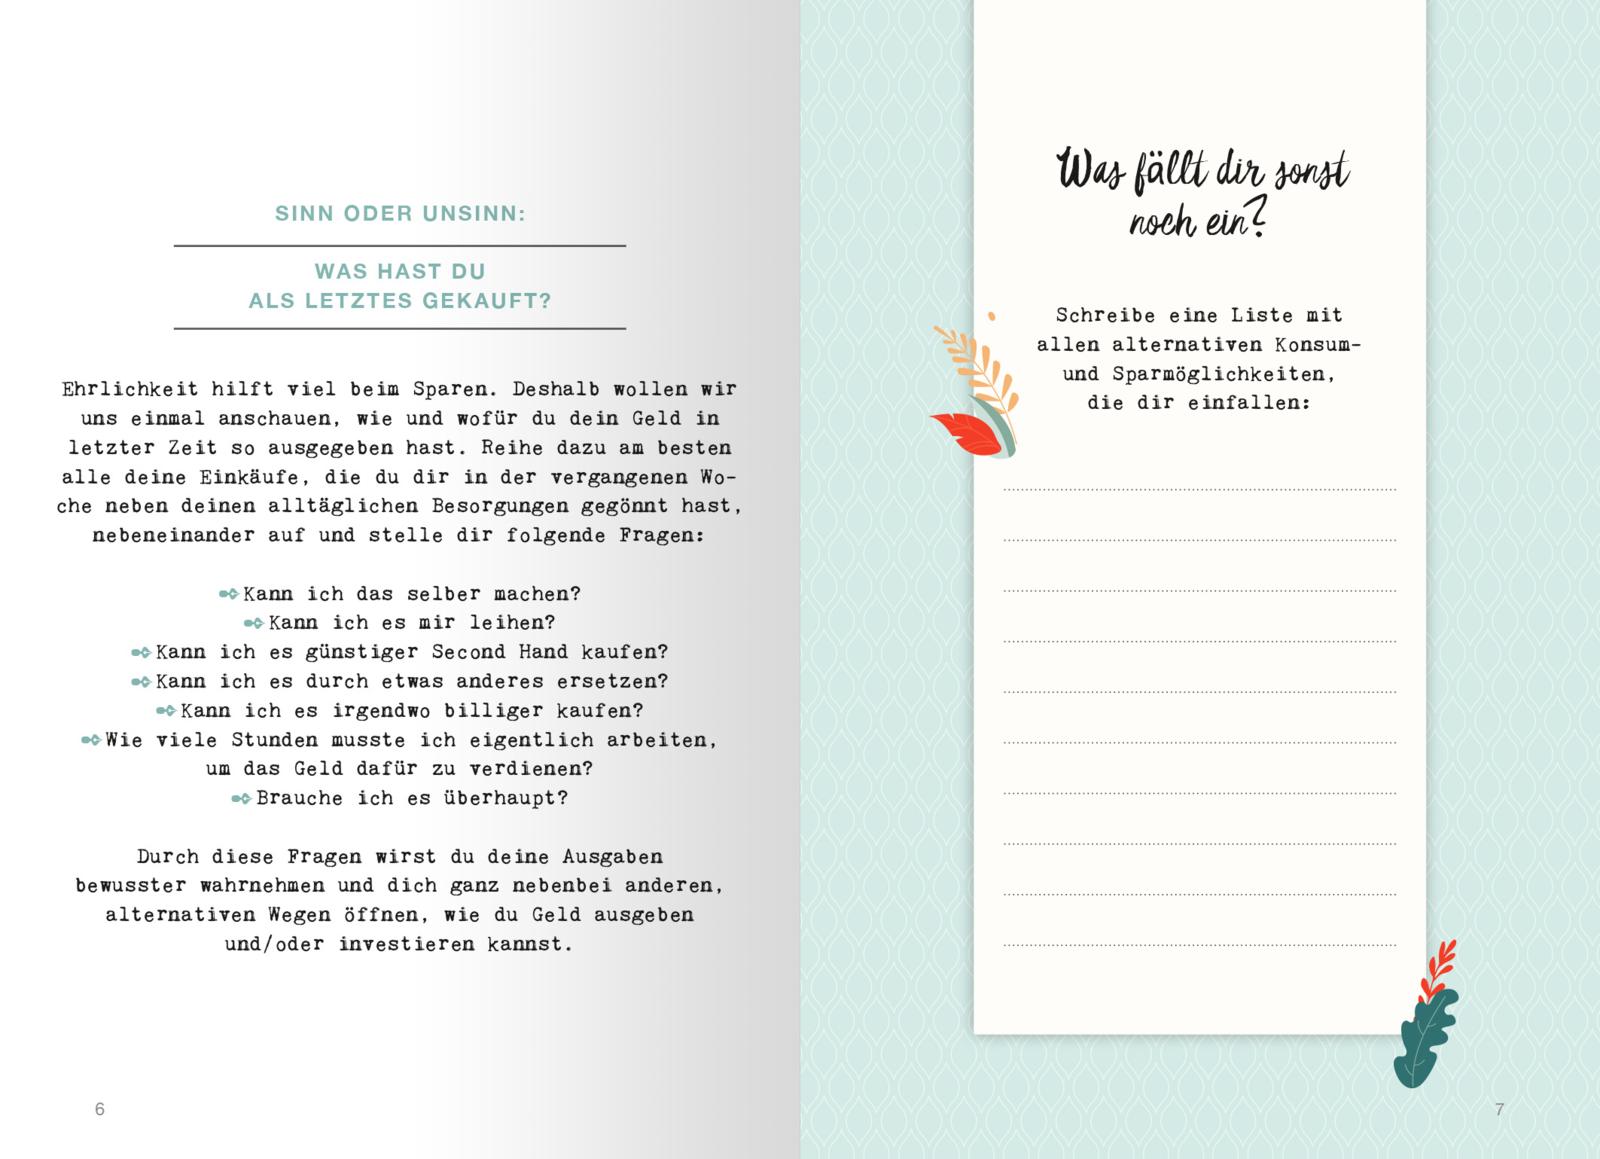 SINN ODER UNSINN:
WAS HAST DU
ALS LETZTES GEKAUFT?
Ehrlichkeit hilft viel beim Sparen. Deshalb wollen wir
uns einmal anschauen, wie und wofür du dein Geld in
letzter Zeit so ausgegeben hast. Reihe dazu am besten
alle deine Einkäufe, die du dir in der vergangenen Wo-
che neben deinen alltäglichen Besorgungen gegönnt hast,
nebeneinander auf und stelle dir folgende Fragen:
Kann ich das selber machen?
Kann ich es mir leihen?
Kann ich es günstiger Second Hand kaufen?
Kann ich es durch etwas anderes ersetzen?
Kann ich es irgendwo billiger kaufen?
Wie viele Stunden musste ich eigentlich arbeiten,
um das Geld dafür zu verdienen?
Brauche ich es überhaupt?
Durch diese Fragen wirst du deine Ausgaben
bewusster wahrnehmen und dich ganz nebenbei anderen,
alternativen Wegen öffnen, wie du Geld ausgeben
und/oder investieren kannst.
6
Was fällt dir sonst
noch ein?
Schreibe eine Liste mit
allen alternativen Konsum-
und Sparmöglichkeiten,
die dir einfallen:
7